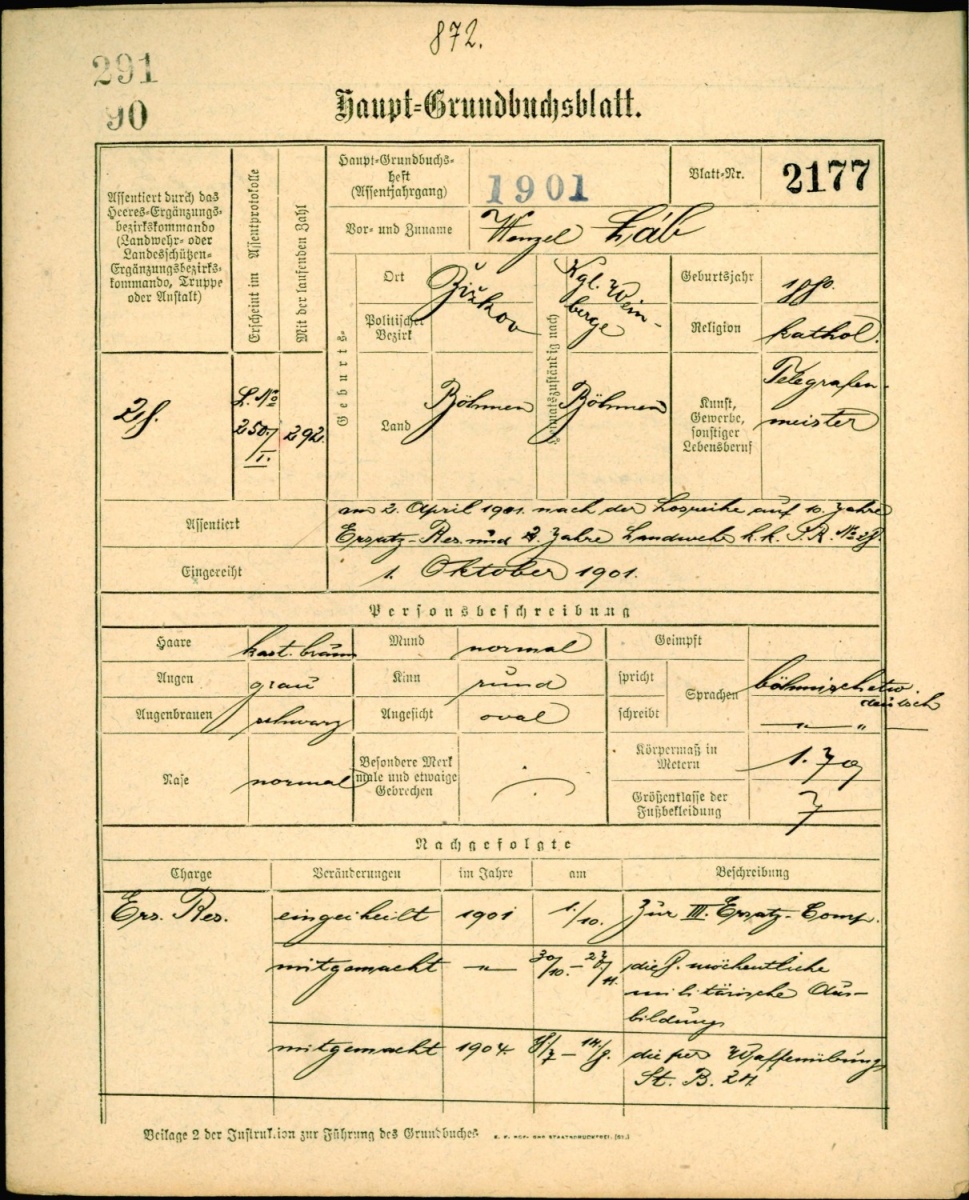 872.
291
90
Haupt-Grundbuchsblatt.
Assentiert durch das
Heeres-Ergänzungs-
bezirkskommando
(Landwehr- oder
Landesschützen-
Ergänzungsbezirks-
kommando, Truppe
oder Anstalt)
Erscheint im Assentprotokolle
Mit der laufenden Zahl
Haupt-Grundbuchs-
heft
(Assentjahrgang)
1901
Blatt-Nr.
2177
Vor- und Zuname
Wenzel Láb
Geburts-
Ort
Politischer
Bezirk
Žižkov
Heimatszuständig nach
Kgl. Wein-
berge
Geburtsjahr
1880.
Religion
kathol.
28.
L. No
250./
I.
292.
Land
Böhmen
Böhmen
Kunst,
Gewerbe,
sonstiger
Lebensberuf
Telegrafen-
meister
Assentiert
am 2. April 1901. nach der Losreihe auf 10 Jahre
Ersatz-Res. und 2. Jahre Landwehr k. k. I. R. No 28.
Eingereiht
1. Oktober 1901.
Personsbeschreibung
Haare
kast. braun
Mund
normal
Geimpft
Augen
grau
Kinn
rund
spricht
Sprachen
böhmisch etw.
deutsch
Augenbrauen
schwarz
Angesicht
oval
schreibt
" "
Nase
normal
Besondere Merk
male und etwaige
Gebrechen
Körpermaß in
Metern
1.70
Größenklasse der
Fußbekleidung
7
Nachgefolgte
Charge Veränderungen im Jahre am Beschreibung
Ers. Res. eingetheilt 1901 1./10. Zur III. Ersatz-Comp.
mitgemacht " 30/10. – 27/11. die 8. wöchentliche
militärische Aus-
bildung
mitgemacht 1904. 8/7 – 14/8. die Waffenübung
St. B. 24.
Beilage 2 der Instruktion zur Führung des Grundbuches
K. K. HOF- UND STAATSDRUCKEREI.